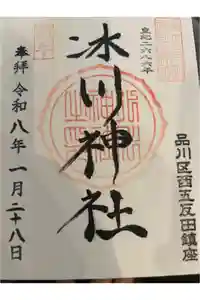 皇紀二六八六年
品川区西五反田鎮座
氷川神社
奉拝 令和八年 一月二十八日